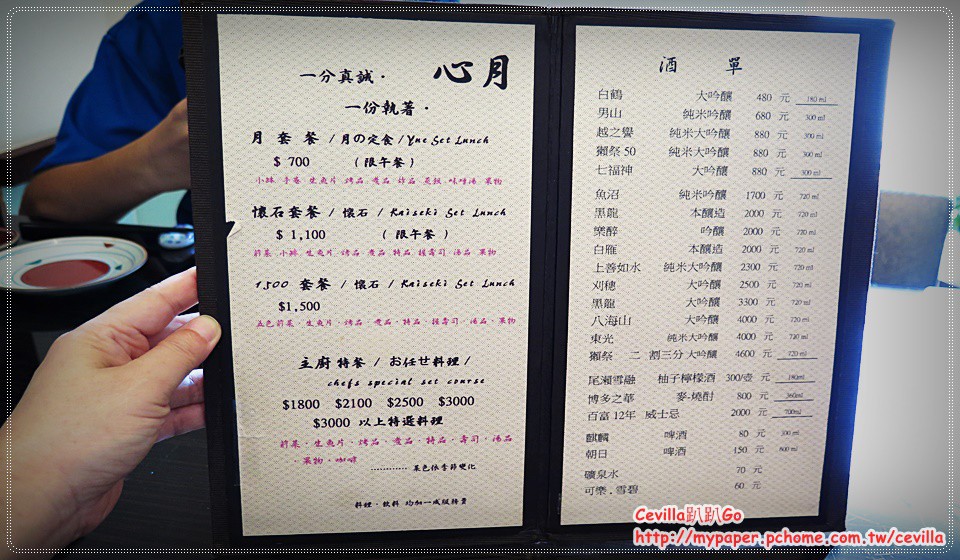 心月
一分真誠·
一份執著·
月 套 餐 / 月の定食 / Yue Set Lunch
$ 700 ( 限午餐 )
小缽·手卷·生魚片·烤品·煮品·炸品·蒸飯·味噌湯·果物
懷石套餐 / 懷石 / Kaiseki Set Lunch
$ 1,100 ( 限午餐 )
前菜·小缽·生魚片·烤品·煮品·特品·握壽司·湯品·果物
1,500 套餐 / 懷石 / Kaiseki Set Lunch
$1,500
五色前菜·生魚片·烤品·煮品·特品·握壽司·湯品·果物
主廚特餐 / お任せ料理 /
chefs special set course
$1800 $2100 $2500 $3000
$3000 以上特選料理
前菜·生魚片·烤品·煮品·特品·壽司·湯品
果物·咖啡
............ 菜色依季節變化
料理·飲料 均加一成服務費
酒 單
白鶴 大吟釀 480 元 180 ml
男山 純米吟釀 680 元 300 ml
越之譽 純米大吟釀 880 元 300 ml
獺祭 50 純米大吟釀 880 元 300 ml
七福神 大吟釀 880 元 300 ml
魚沼 純米吟釀 1700 元 720 ml
黑龍 本釀造 2000 元 720 ml
樂醉 吟釀 2000 元 720 ml
白雁 本釀造 2000 元 720 ml
上善如水 純米大吟釀 2300 元 720 ml
刈穗 大吟釀 2500 元 720 ml
黑龍 大吟釀 3300 元 720 ml
八海山 大吟釀 4000 元 720 ml
東光 純米大吟釀 4000 元 720 ml
獺祭 二 割三分 大吟釀 4600 元 720 ml
尾瀨雪融 柚子檸檬酒 300/壺 元 180ml
博多之華 麥-燒酎 800 元 360ml
百富 12年 威士忌 2000 元 700ml
麒麟 啤酒 80 元 300 ml
朝日 啤酒 150 元 600 ml
礦泉水 70 元
可樂.雪碧 60 元
Cevilla趴趴Go
http://mypaper.pchome.com.tw/cevilla